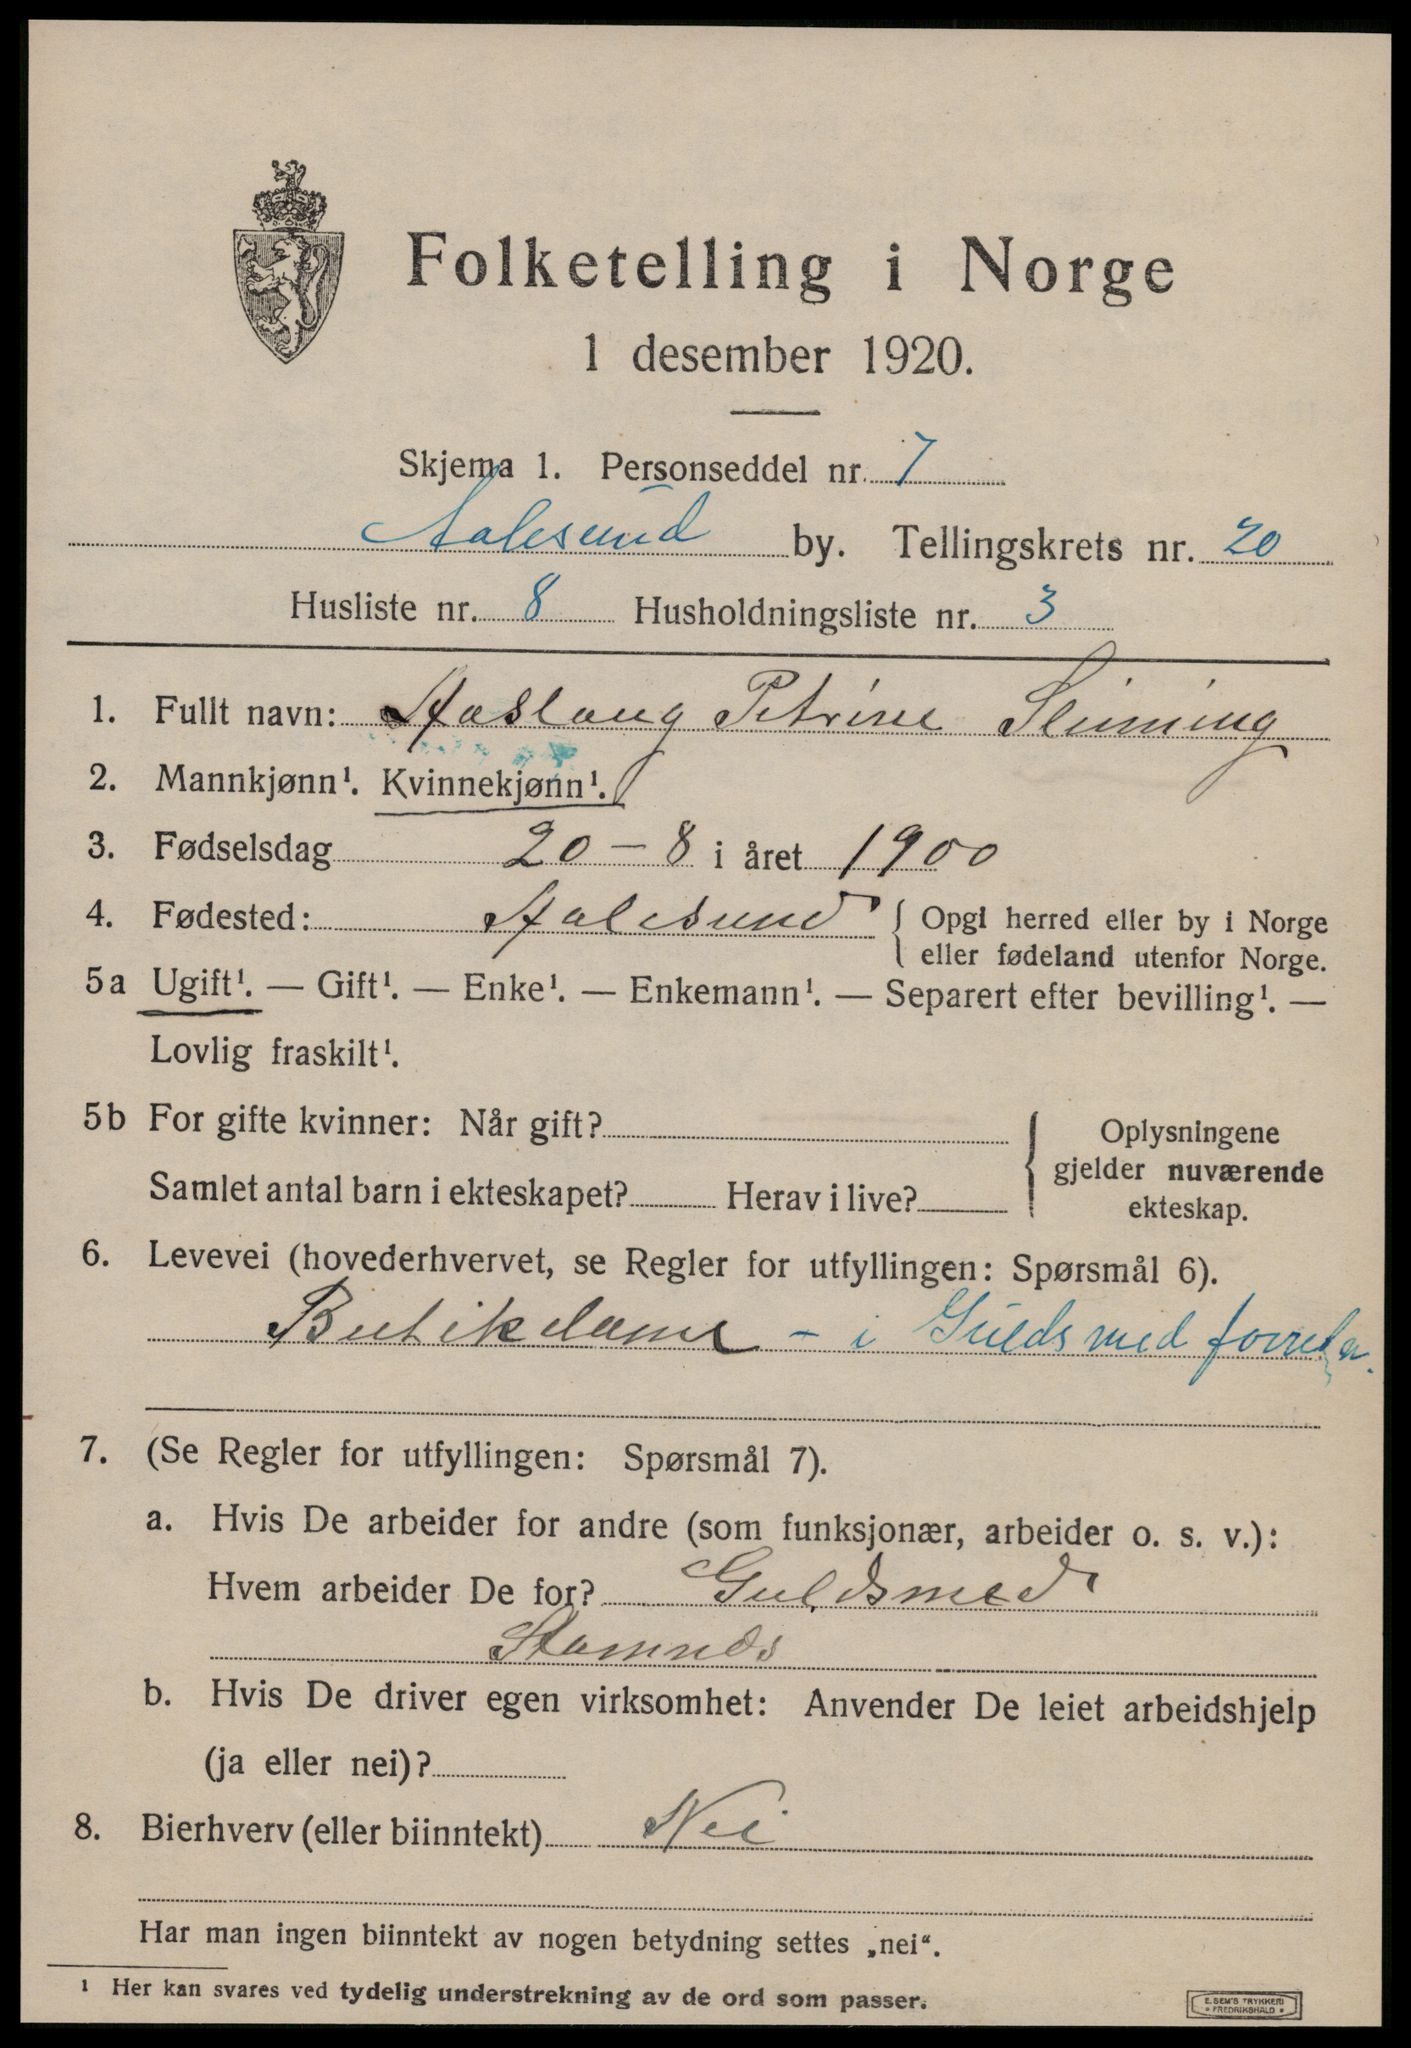 Folketelling i Norge
1 desember 1920.
Skjema 1. Personseddel nr. 7
Aalesund by. Tellingskrets nr. 20
Husliste nr. 8 Husholdningsliste nr. 3
1. Fullt navn: Aaslaug Petrine Slinning
2. Mannkjønn¹. Kvinnekjønn¹.
3. Fødselsdag 20 - 8 i året 1900
4. Fødested: Aalesund { Opgi herred eller by i Norge
eller fødeland utenfor Norge.
5a Ugift¹. — Gift¹. — Enke¹. — Enkemann¹. — Separert efter bevilling¹. —
Lovlig fraskilt¹.
5b For gifte kvinner: Når gift? { Oplysningene
gjelder nuværende
Samlet antal barn i ekteskapet? Herav i live?
ekteskap.
6. Levevei (hovederhvervet, se Regler for utfyllingen: Spørsmål 6).
Butikdame - i Guldsmedforretn.
7. (Se Regler for utfyllingen: Spørsmål 7).
a. Hvis De arbeider for andre (som funksjonær, arbeider o. s. v.):
Hvem arbeider De for? Guldsmed
Stamnes
b. Hvis De driver egen virksomhet: Anvender De leiet arbeidshjelp
(ja eller nei)?
8. Bierhverv (eller biinntekt) Nei
Har man ingen biinntekt av nogen betydning settes „nei“.
¹ Her kan svares ved tydelig understrekning av de ord som passer.
E. SEM'S TRYKKERI
• FREDRIKSHALD •